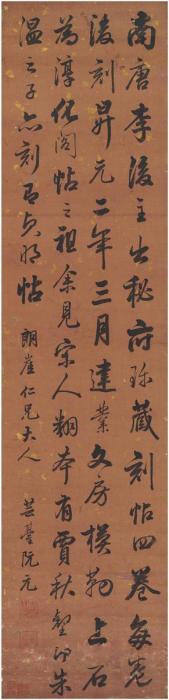 南唐李後主出秘府珍藏刻帖四卷每卷
後刻昇元二年三月建業文房模勒上石
為淳化閣帖之祖余見宋人翻本有賈秋壑印朱
溫之子亦刻有貞明帖
朗崖仁兄大人
芸臺阮元